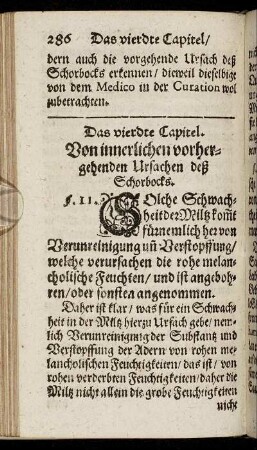 286 Das vierdte Capitel/
dern auch die vorgehende Ursach deß
Schorbocks erkennen/ dieweil dieselbige
von dem Medico in der Curation wol
zubetrachten.
Das vierdte Capitel.
Von innerlichen vorher-
gehenden Ursachen deß
Schorbocks.
§. 11. SOlche Schwach-
heit der Miltz komt
fürnemlich her von
Verunreinigung uñ Verstopffung/
welche verursachen die rohe melan-
cholische Feuchten/ und ist angeboh-
ren/ oder sonsten angenommen.
Daher ist klar/ was für ein Schwach-
heit in der Miltz hierzu Ursach gebe/ nem-
lich Verunreinigung der Substantz und
Verstopffung der Adern von rohen me-
lancholischen Feuchtigkeiten/ das ist/ von
rohen verderbten Feuchtigkeiten/ daher die
Miltz nicht allein die grobe Feuchtigkeiten
nicht